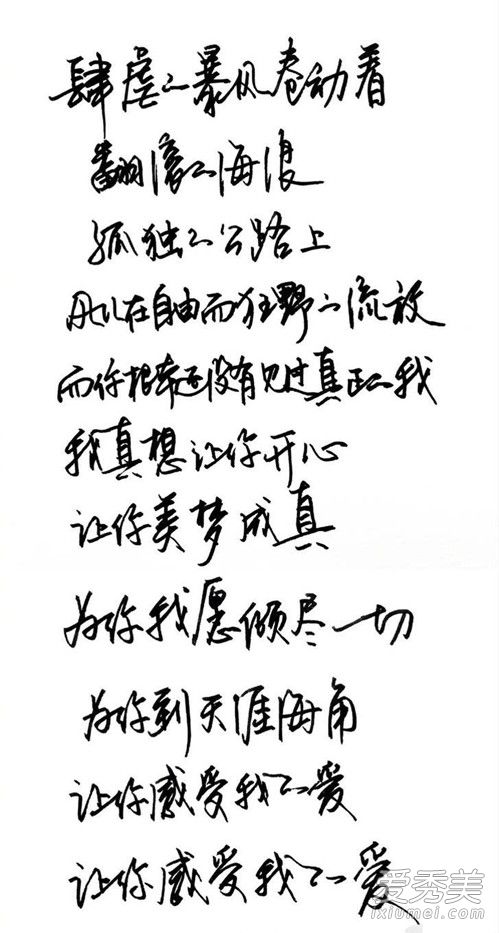 肆虐的暴风卷动着
翻滚的海浪
孤独的公路上
风儿在自由而狂野的流放
而你根本还没有见过真正的我
我真想让你开心
让你美梦成真
为你我愿倾尽一切
为你到天涯海角
让你感受我的爱
让你感受我的爱
爱秀美
ixiumei.com